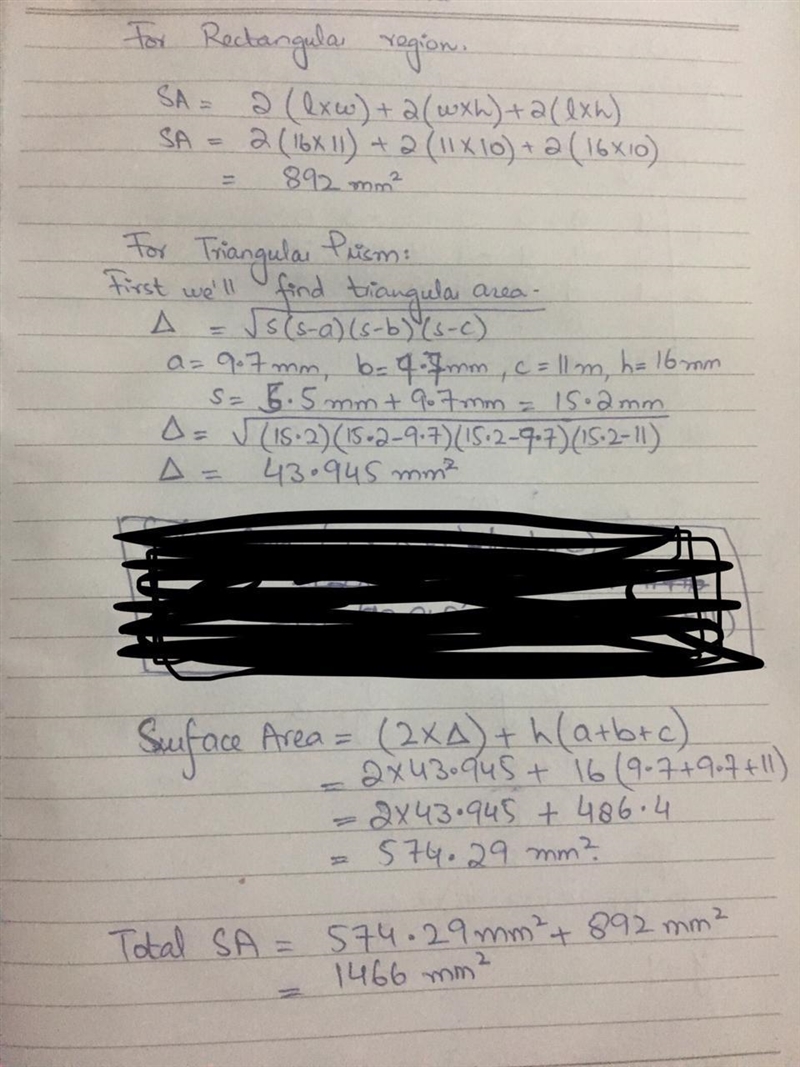 For Rectangular region.
SA = 2(l×w) + 2(w×h) + 2(l×h)
SA = 2(16×11) + 2(11×10) + 2(16×10)
= 892 mm²
For Triangular Prism:
First we'll find triangular area-
Δ = √s(s-a)(s-b)(s-c)
a = 9.7mm, b = 9.7mm, c = 11m, h = 16mm
s = 5.5mm + 9.7mm = 15.2mm
Δ = √(15.2)(15.2-9.7)(15.2-9.7)(15.2-11)
Δ = 43.945 mm²
Surface Area = (2×Δ) + h(a+b+c)
= 2×43.945 + 16(9.7+9.7+11)
= 2×43.945 + 486.4
= 574.29 mm².
Total SA = 574.29mm² + 892 mm²
= 1466 mm²